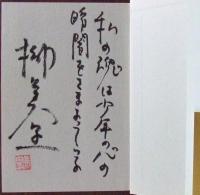 私の魂は少年の心の
時間をさまよっている
柳美里